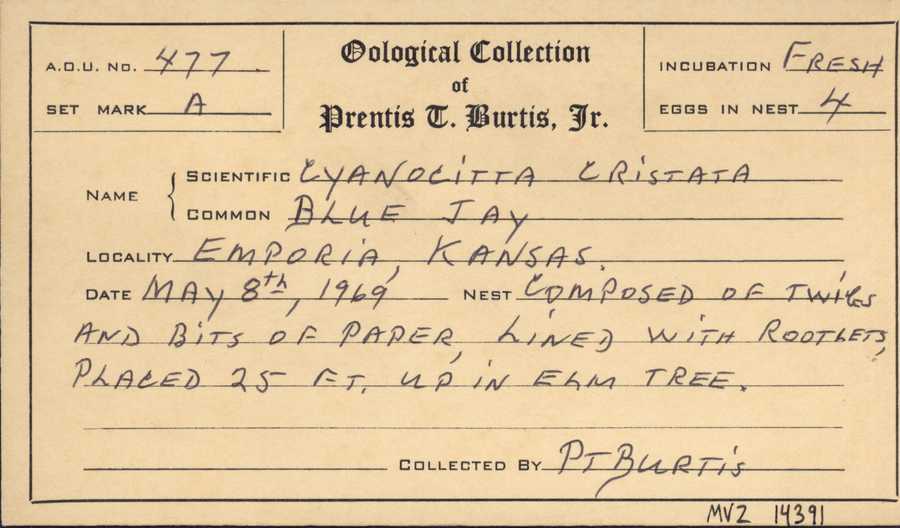 A.O.U. No. 477.
Oological Collection
of
Prentis T. Burtis, Jr.
INCUBATION FRESH
SET MARK A
EGGS IN NEST 4
NAME
SCIENTIFIC CYANOCITTA CRISTATA
COMMON BLUE JAY
LOCALITY EMPORIA, KANSAS.
DATE MAY 8th, 1969 NEST COMPOSED OF TWIGS
AND BITS OF PAPER, LINED WITH ROOTLETS,
PLACED 25 FT. UP IN ELM TREE.
COLLECTED BY PTBURTIS
MVZ 14391